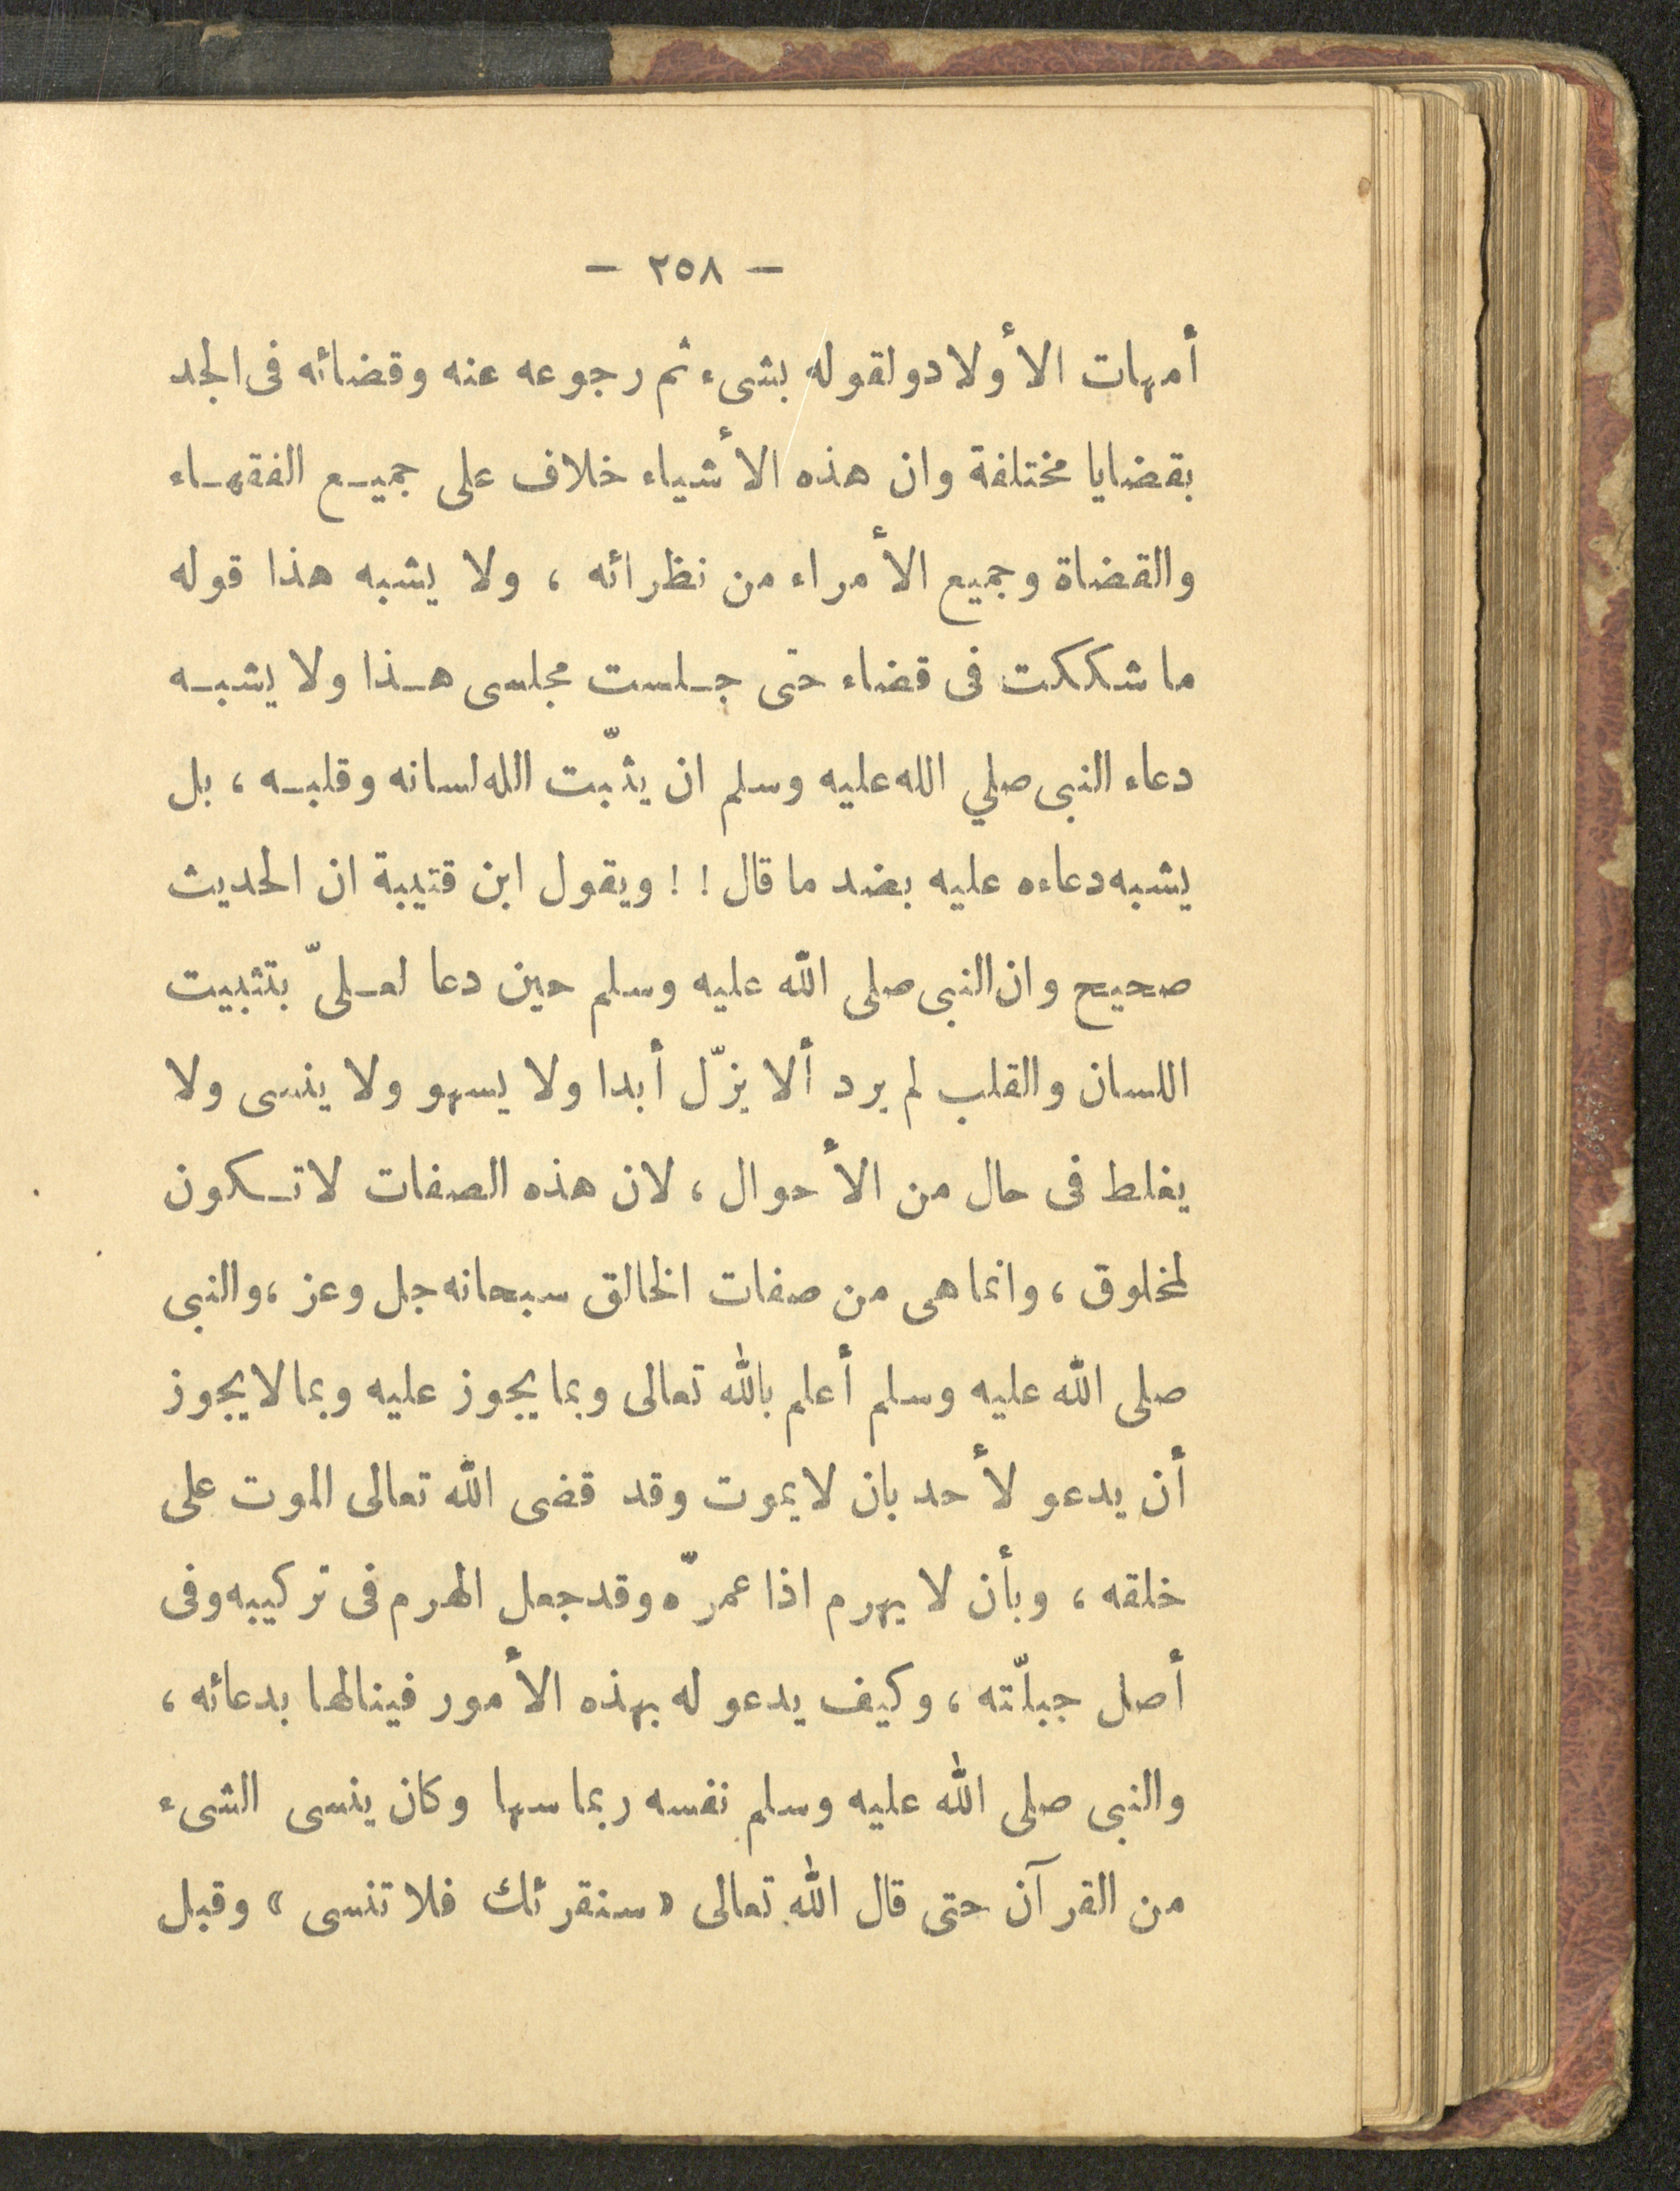 — ٢٥٨ —
أمهات الأولاد ولقوله بشىء ثم رجوعه عنه وقضائه فى الجد
بقضايا مختلفة وان هذه الأشياء خلاف على جميع الفقهاء
والقضاة وجميع الأمراء من نظرائه ، ولا يشبه هذا قوله
ما شككت فى قضاء حتى جلست مجلسى هذا ولا يشبه
دعاء النبى صلي الله عليه وسلم ان يثبّت الله لسانه وقلبه ، بل
يشبه دعاءه عليه بضد ما قال ! ! ويقول ابن قتيبة ان الحديث
صحيح وان النبى صلى الله عليه وسلم حين دعا لعلىّ بتثبيت
اللسان والقلب لم يرد ألا يزّل أبدا ولا يسهو ولا ينسى ولا
يغلط فى حال من الأحوال ، لان هذه الصفات لاتكون
لمخلوق ، وانما هى من صفات الخالق سبحانه جل وعز ، والنبى
صلى الله عليه وسلم أعلم بالله تعالى وبما يجوز عليه وبما لا يجوز
أن يدعو لأحد بان لا يموت وقد قضى الله تعالى الموت على
خلقه ، وبأن لا يهرم اذا عمرّه وقد جعل الهرم فى تركيبه وفى
أصل جبلّته ، وكيف يدعو له بهذه الأمور فينالها بدعائه ،
والنبى صلى الله عليه وسلم نفسه ربما سها وكان ينسى الشىء
من القرآن حتى قال الله تعالى « سنقرئك فلا تنسى » وقبل